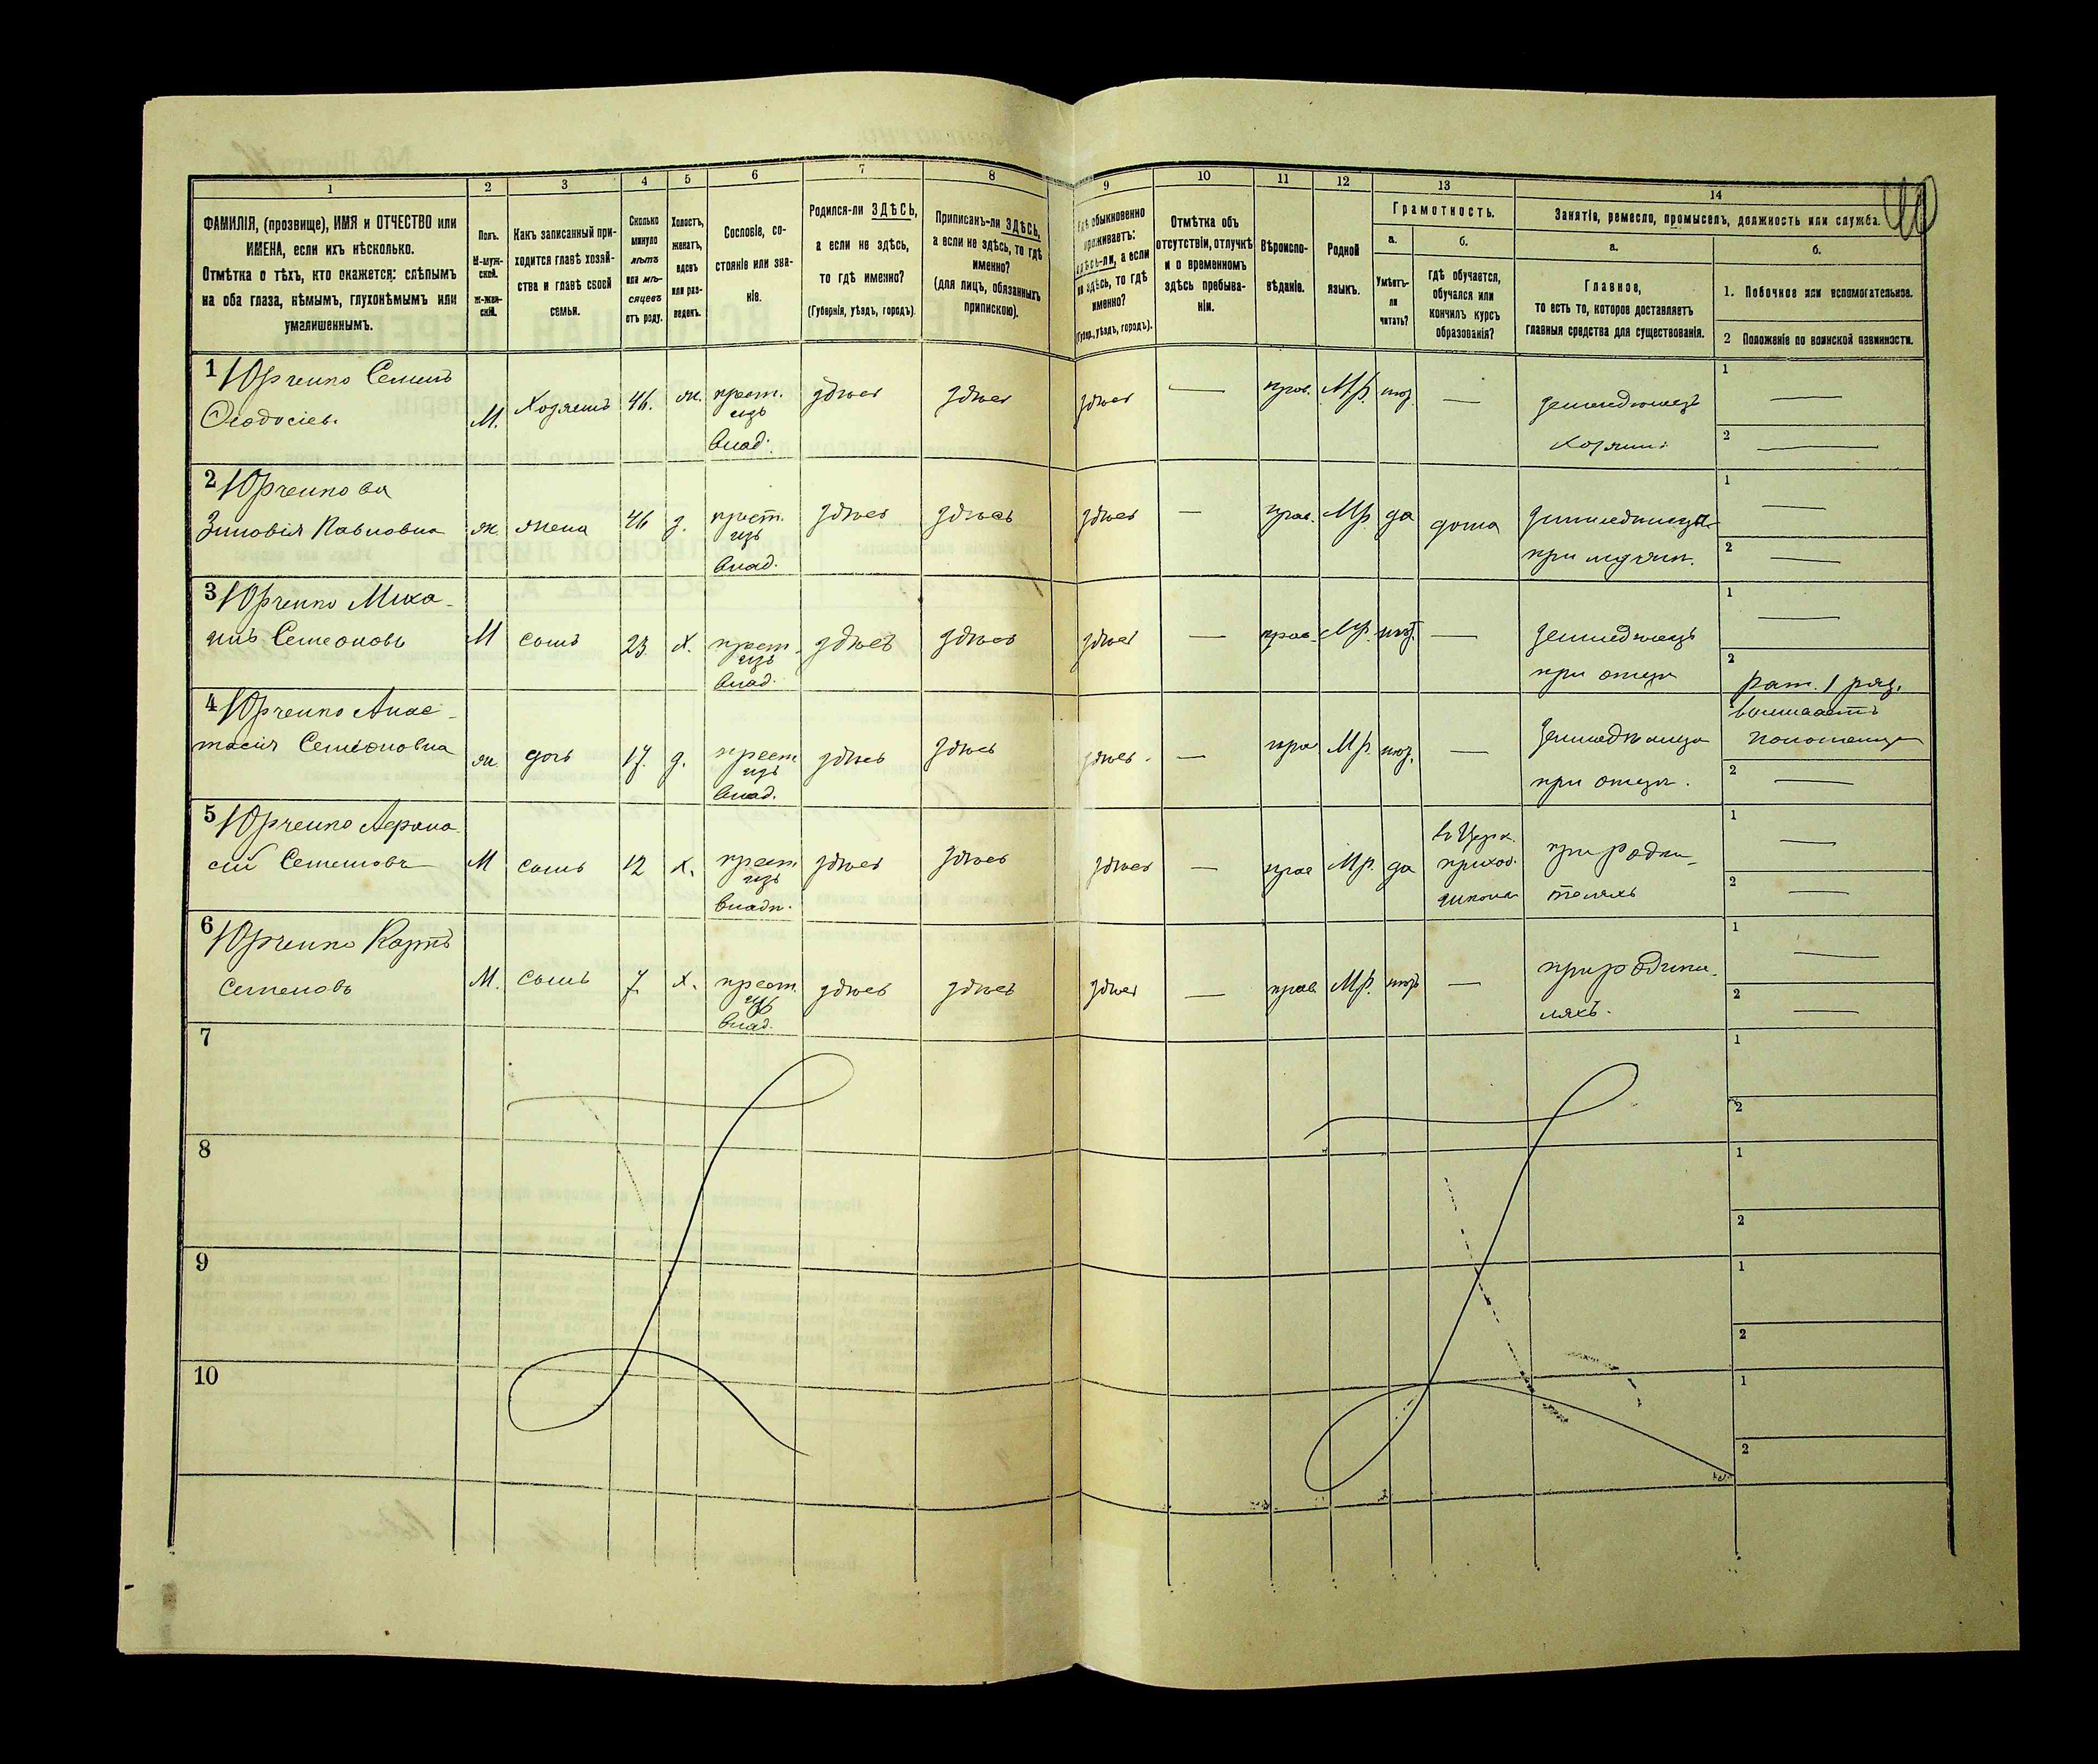 1
2
3
4
5
6
7
8
9
10
11
12
13
14
ФАМИЛІЯ, (прозвище), ИМЯ и ОТЧЕСТВО или
ИМЕНА, если ихъ нѣсколько.
Отмѣтка о тѣхъ, кто окажется: слѣпымъ
на оба глаза, нѣмымъ, глухонѣмымъ или
умалишеннымъ.
Полъ.
М-муж-
ской.
ж-жен-
скій.
Какъ записанный при-
ходится главѣ хозяй-
ства и главѣ своей
семьи.
Сколько
минуло
лѣтъ
или мѣ-
сяцевъ
отъ роду.
Холостъ,
женатъ,
вдовъ
или раз-
веденъ.
Сословіе, со-
стояніе или зва-
ніе.
Родился-ли ЗДѢСЬ,
а если не здѣсь,
то гдѣ именно?
(Губернія, уѣздъ, городъ).
Приписанъ-ли ЗДѢСЬ,
а если не здѣсь, то гдѣ
именно?
(для лицъ, обязанныхъ
припискою).
Гдѣ обыкновенно
проживаетъ:
здѣсь-ли, а если
не здѣсь, то гдѣ
именно?
(Губер., уѣздъ, городъ).
Отмѣтка объ
отсутствіи, отлучкѣ
и о временномъ
здѣсь пребыва-
ніи.
Вѣроиспо-
вѣданіе.
Родной
языкъ.
Грамотность.
а.
Умѣетъ-
ли
читать?
б.
гдѣ обучается,
обучался или
кончилъ курсъ
образованія?
Занятіе, ремесло, промыселъ, должность или служба.
а.
Главное,
то есть то, которое доставляетъ
главныя средства для существованія.
б.
1. Побочное или вспомогательное.
2 Положеніе по воинской повинности.
1 Юрченко Семенъ
Ѳеодосіев.
М. Хозяинъ 46. ж. крест. изъ владѣ. здѣсь здѣсь здѣсь — прав. Мр. нѣт. —
земледѣлецъ
хозяинъ
1 —
2 —
2 Юрченкова
Зиновія Павловна
ж. жена 46 з. крест. изъ влад. здѣсь здѣсь здѣсь — прав. Мр. да дома
при мужѣ.
1 —
2 —
3 Юрченко Миха-
илъ Семеоновъ
М сынъ 23. х. крест. изъ влад. здѣсь здѣсь здѣсь — прав. Мр. нѣт. —
земледѣлецъ
при отцѣ
1 —
2 рат. 1 раз.
4 Юрченко Анас-
тасія Семеоновна
ж. дочь 17. д. крест изъ влад. здѣсь здѣсь здѣсь. — прав Мр. нѣт. —
при отцѣ.
1 вышиваетъ
полотенца
2 —
5 Юрченко Афана-
сій Семеновъ
М сынъ 12 х. крест изъ владѣ. здѣсь здѣсь здѣсь — прав Мр. да
въ Церк.
приход.
школѣ
при роди-
теляхъ
1 —
2 —
6 Юрченко Карпъ
Семеновъ
М. сынъ 7. х. крест. изъ влад. здѣсь здѣсь здѣсь — прав. Мр. нѣт —
при родите-
ляхъ.
1 —
2 —
7
1
2
8
1
2
9
1
2
10
1
2